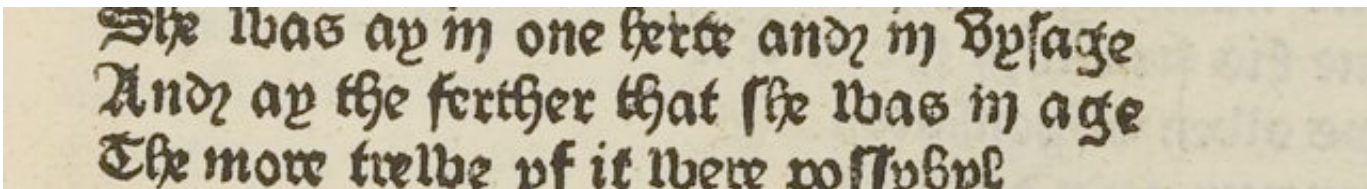 She was ay in one herte and in vysage
And ay the ferther that she was in age
The more trewe yf it were possybyl